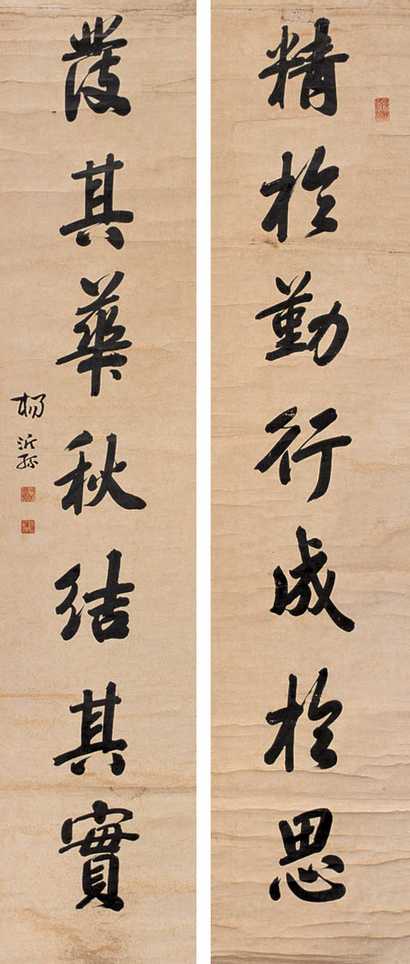 精於勤行成於思
發其華秋結其實
楊沂孫